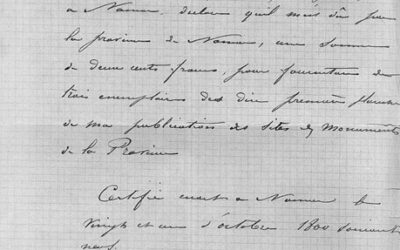 a Namur, déclare qu'il m'est dû par
la province de Namur, une somme
de deux cents francs, pour fourniture de
trois exemplaires des dix premières planches
de ma publication des Sites & Monuments
de la Province
Certifié exact a Namur le
vingt et un d'octobre 1800 soixante
neuf